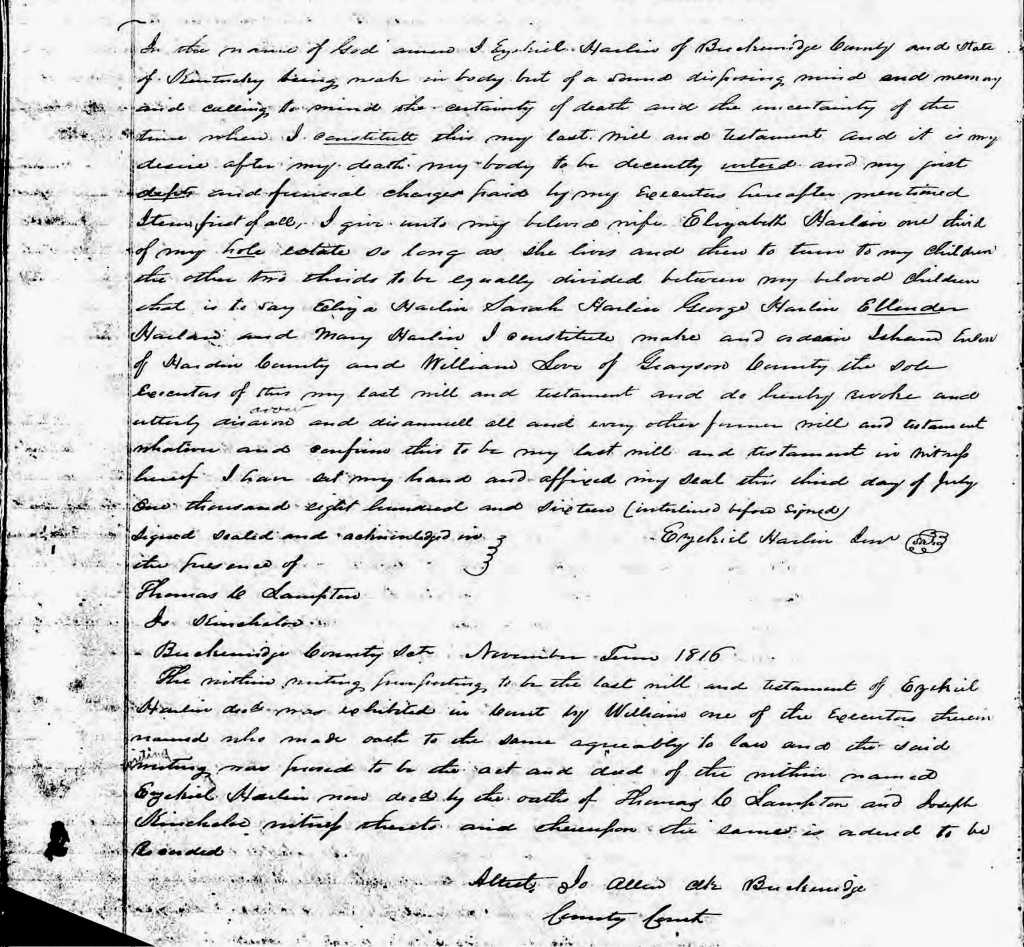 In the name of God amen I Ezekiel Harlin of Breckenridge County and State
of Kentucky being weak in body but of a sound disposing mind and memory
and calling to mind the certainty of death and the uncertainty of the
time when I constitute this my last will and testament and it is my
desire after my death my body to be decently interd and my just
depts and funeral charges paid by my Executors hereafter mentioned
Item first of all, I give unto my beloved wife Elizabeth Harlin one third
of my hole estate so long as she lives and then to turn to my children
the other two thirds to be equally divided between my beloved children
that is to say Eliza Harlin Sarah Harlin George Harlin Ellender
Harlin and Mary Harlin I constitute make and ordain Isham Enlow
of Hardin County and William Love of Grayson County the sole
Executors of this my last will and testament and do hereby revoke and
utterly disavow and disannull all and every other former will and testament
whatever and confirm this to be my last will and testament in witness
hereof I have set my hand and affixed my seal this third day of July
One thousand eight hundred and sixteen (interlined before signed)
Signed sealed and acknowledged in Ezekiel Harlin Senr Seal
the presence of
Thomas C Lampton
Jo Kincheloe
Breckenridge County Sct November Term 1816
The within writing purporting to be the last will and testament of Ezekiel
Harlin decd was exhibited in Court by William one of the Executors therein
named who made oath to the same agreeably to law and the said
writing was proved to be the act and deed of the within named
Ezekiel Harlin now decd by the oaths of Thomas C Lampton and Joseph
Kincheloe witness thereto and thereupon the same is odered to be
Recorded
Attest Jo Allen Clk Breckenridge
County Court